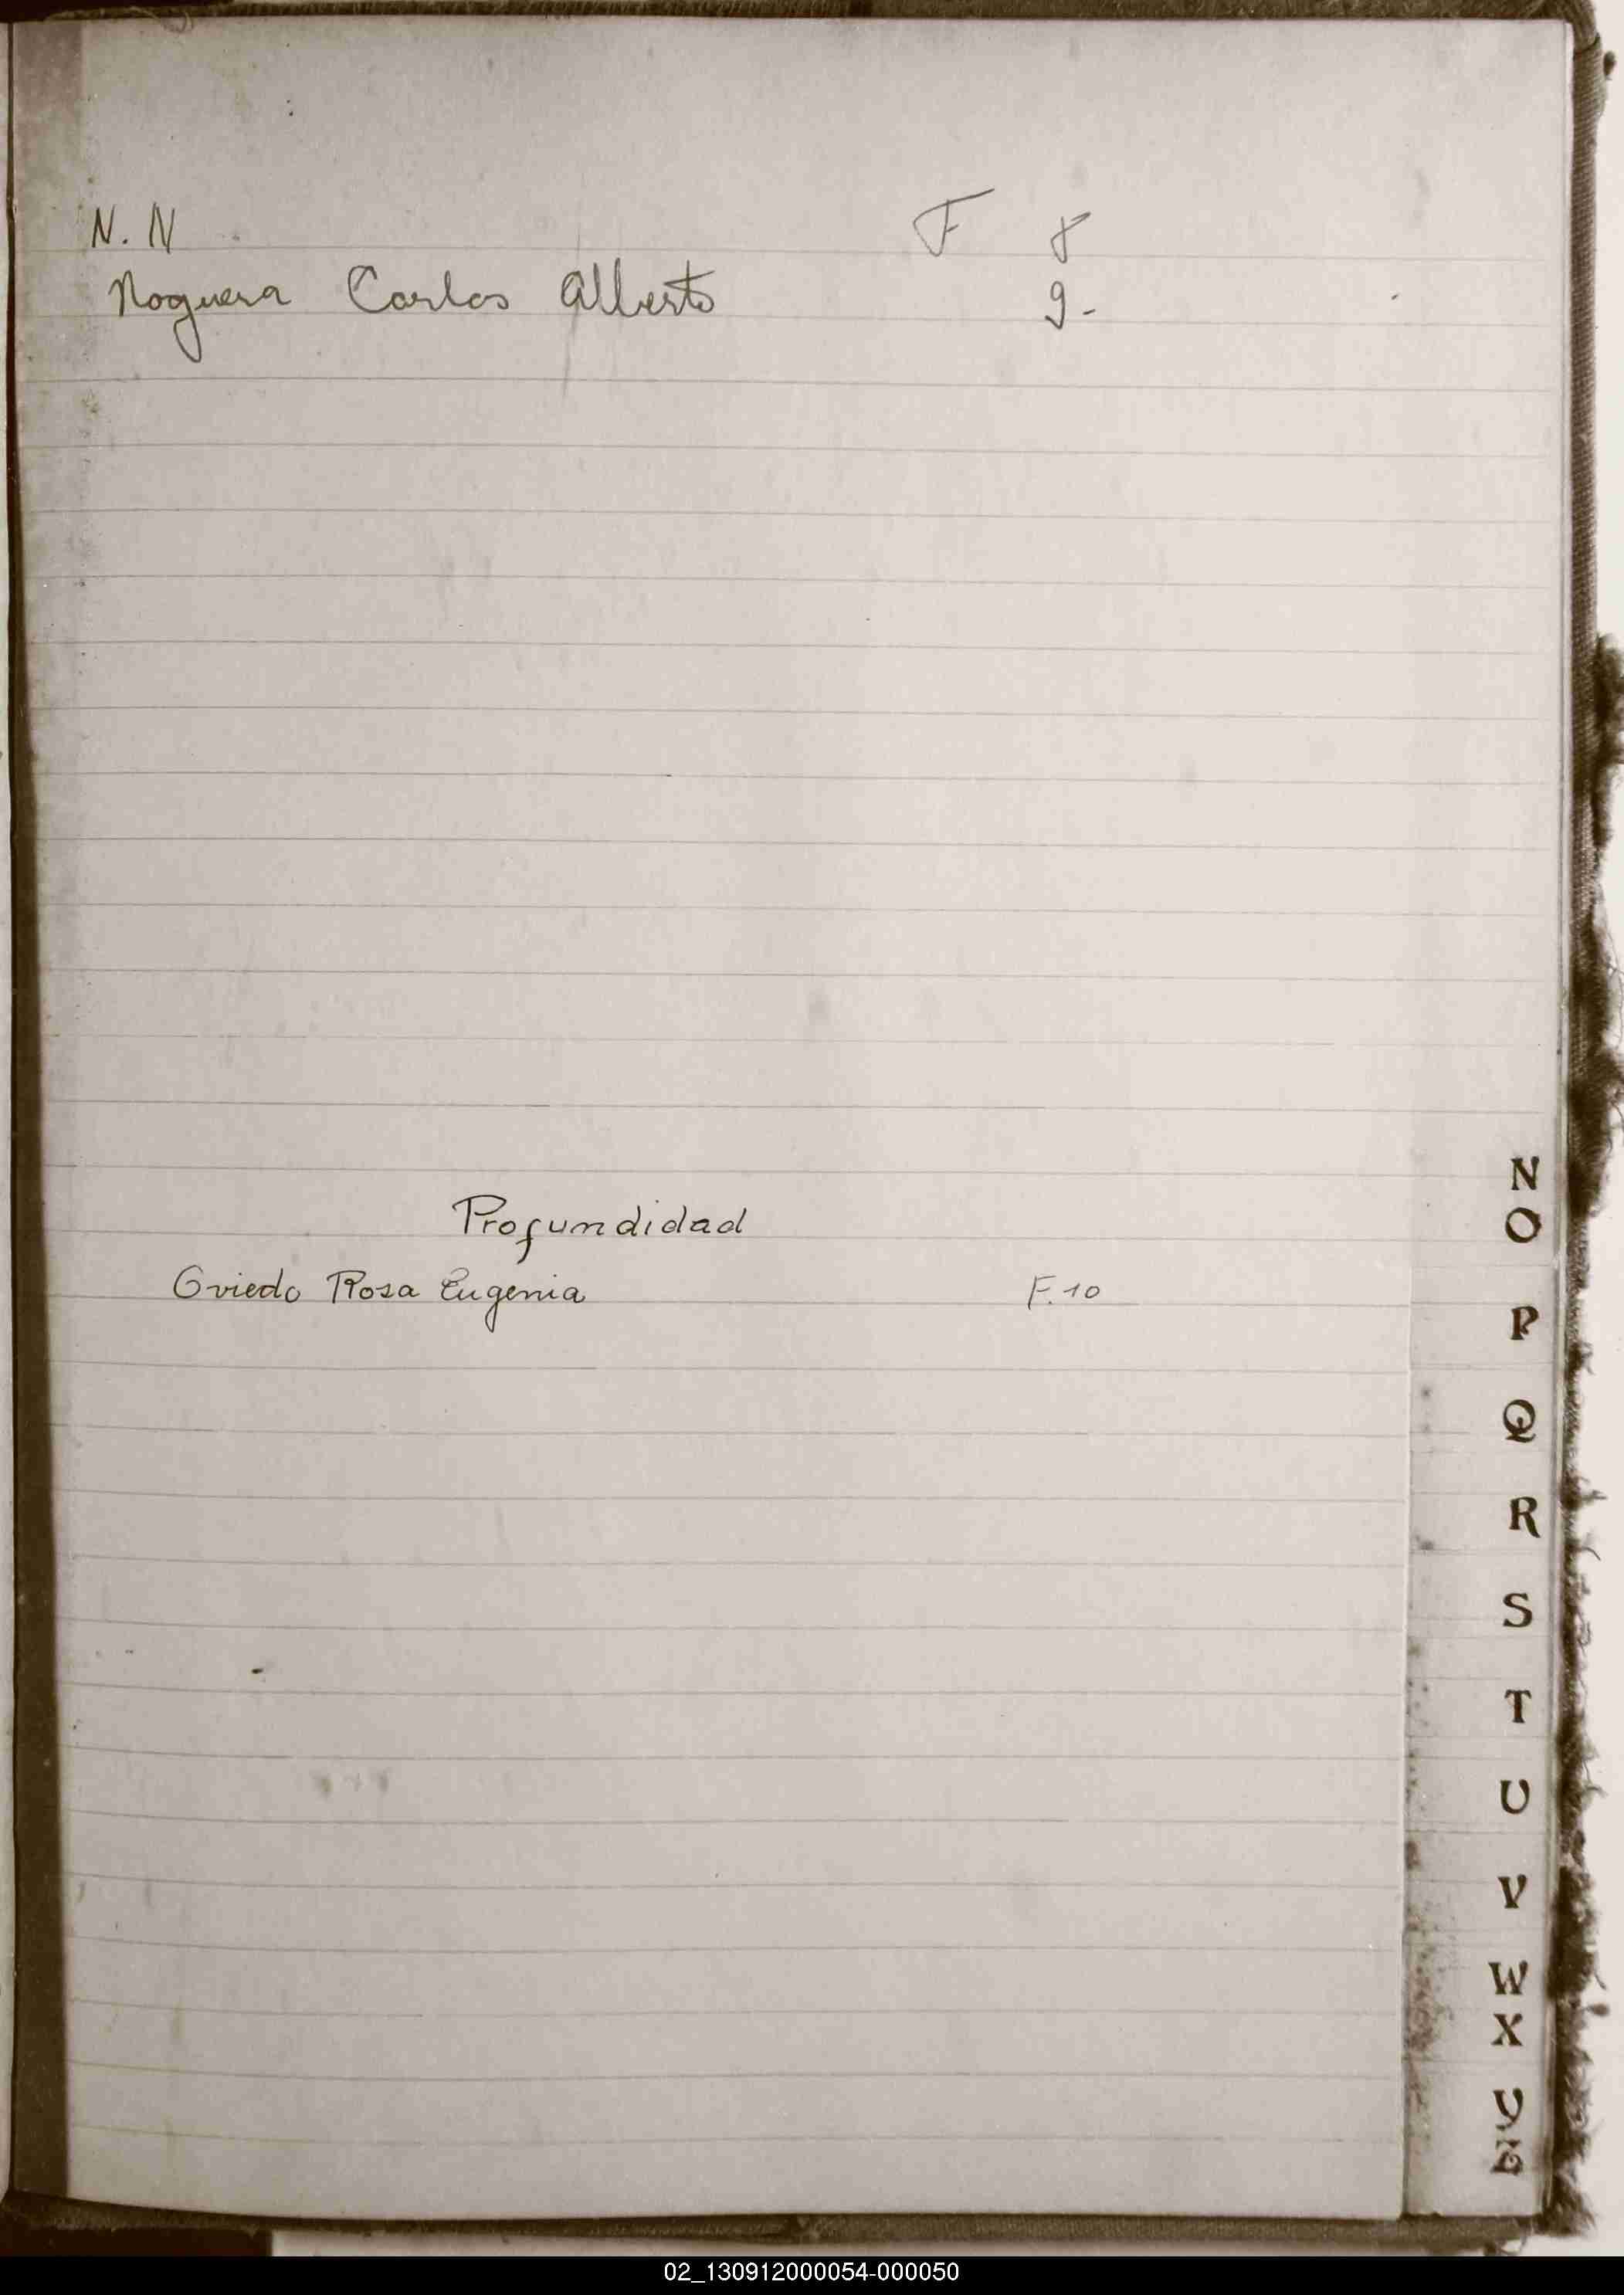 N. N F 8
Noguera Carlos Alberto 9-
Profundidad
Oviedo Rosa Eugenia F. 10
N
O
P
Q
R
S
T
U
V
W
X
Y
02_130912000054-000050